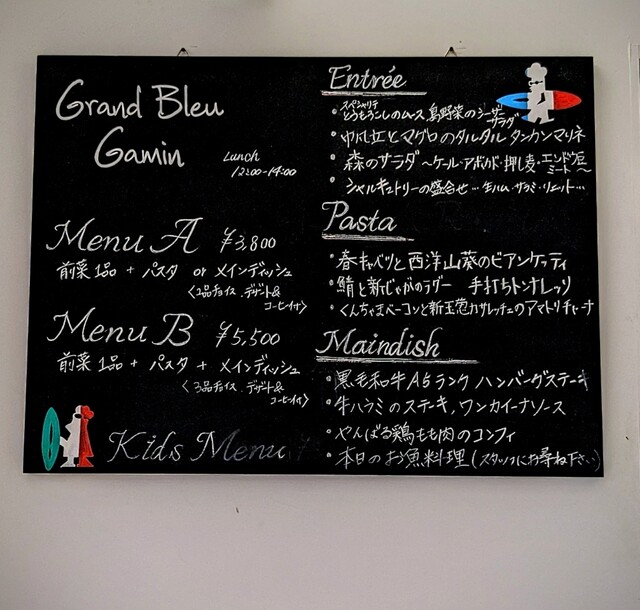 Grand Bleu
Gamin
Lunch
12:00-14:00
Menu A ¥3,800
前菜1品 + パスタ or メインディッシュ
〈2品チョイス、デザート&
コーヒー付〉
Menu B ¥5,500
前菜1品 + パスタ + メインディッシュ
〈3品チョイス、デザート&
コーヒー付〉
Kids Menu
Entrée
スペシャリテ
・とうもろこしのムース 島野菜のシーザーサラダ
・帆立とマグロのタルタル タンカンマリネ
・森のサラダ 〜ケール・アボカド・押し麦・エンドウ豆ミート〜
・シャルキュトリーの盛合せ…生ハム・サラミ・リエット…
Pasta
・春キャベツと西洋山葵のビアンケッティ
・鯖と新じゃがのラグー 手打ちトンナレッリ
・くんちゃまベーコンと新玉葱カサレッチェのアマトリチャーナ
Maindish
・黒毛和牛A5ランク ハンバーグステーキ
・牛ハラミのステーキ、ワンカイーナソース
・やんばる鶏もも肉のコンフィ
・本日のお魚料理(スタッフにお尋ね下さい)